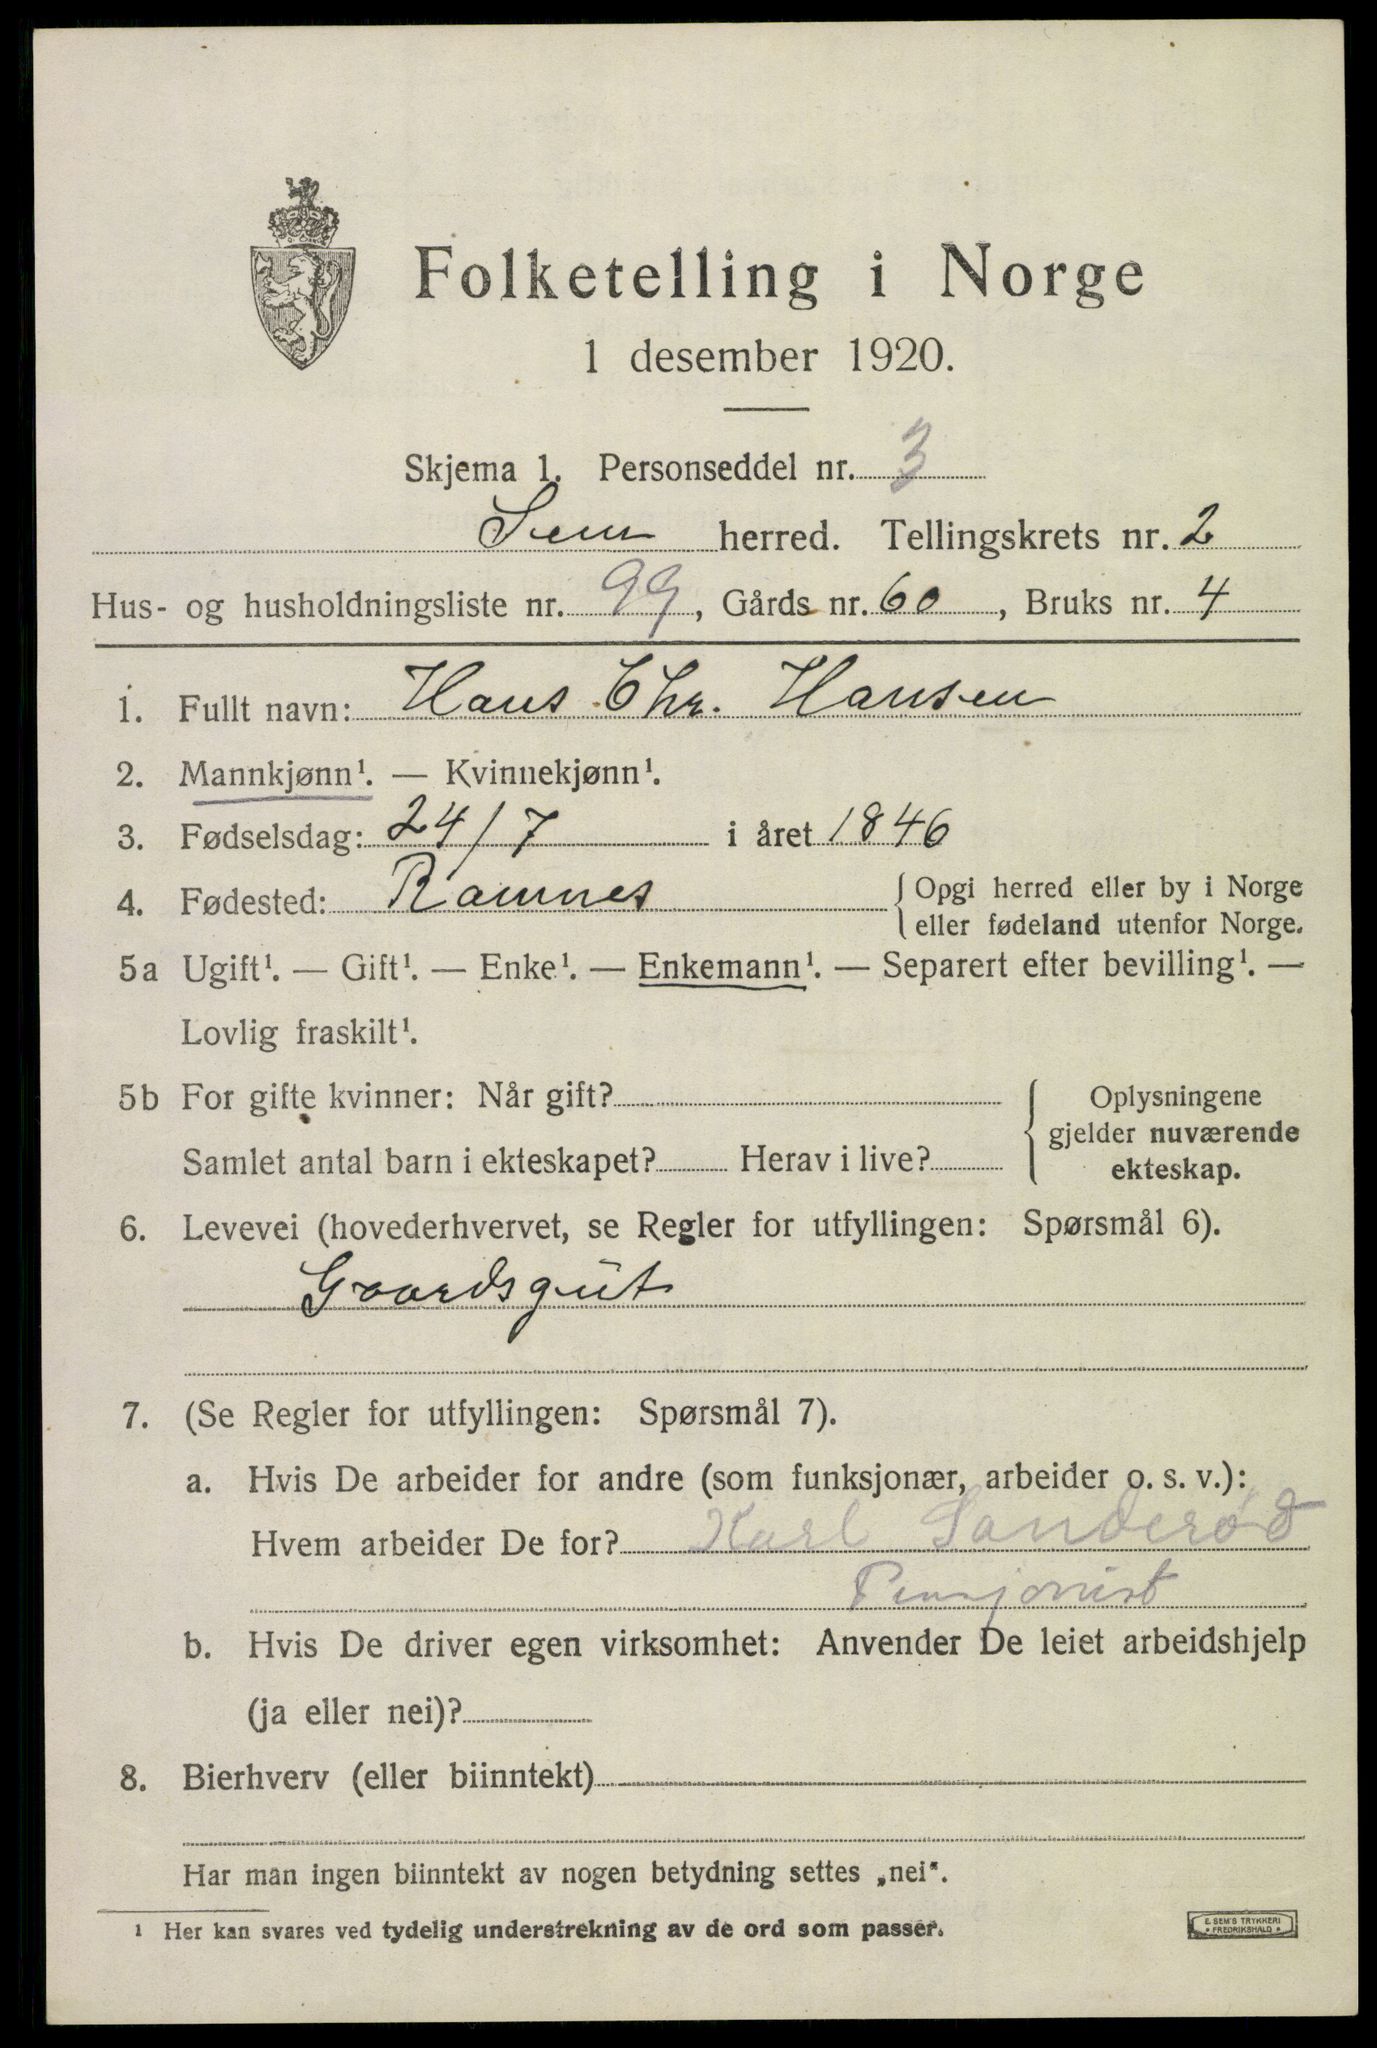 Folketelling i Norge
1 desember 1920.
Skjema 1. Personseddel nr. 3
Sem herred. Tellingskrets nr. 2
Hus- og husholdningsliste nr. 99, Gårds nr. 60, Bruks nr. 4
1. Fullt navn: Hans Chr. Hansen
2. Mannkjønn¹. — Kvinnekjønn¹.
3. Fødselsdag: 24/7 i året 1846
4. Fødested: Ramnes { Opgi herred eller by i Norge
eller fødeland utenfor Norge.
5a Ugift¹. — Gift¹. — Enke¹. — Enkemann¹. — Separert efter bevilling¹. —
Lovlig fraskilt¹.
5b For gifte kvinner: Når gift?
Samlet antal barn i ekteskapet? Herav i live?
Oplysningene
gjelder nuværende
ekteskap.
6. Levevei (hovederhvervet, se Regler for utfyllingen: Spørsmål 6).
Gaardsgut
7. (Se Regler for utfyllingen: Spørsmål 7).
a. Hvis De arbeider for andre (som funksjonær, arbeider o. s. v.):
Hvem arbeider De for? Karl Sanderød
Pensjonist
b. Hvis De driver egen virksomhet: Anvender De leiet arbeidshjelp
(ja eller nei)?
8. Bierhverv (eller biinntekt)
Har man ingen biinntekt av nogen betydning settes „nei“.
1 Her kan svares ved tydelig understrekning av de ord som passer.
E. SEM'S TRYKKERI
* FREDRIKSHALD *